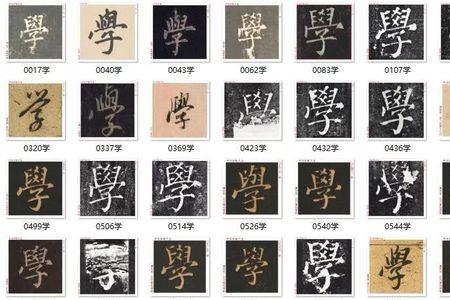 學 學 學 學 學 學
0017学 0040学 0043学 0062学 0083学 0107学
学 學 學 學 學 學
0320学 0337学 0369学 0423学 0432学 0436学
學 學 學 學 學 學
0499学 0506学 0514学 0526学 0540学 0544学
學 學 學 學 學